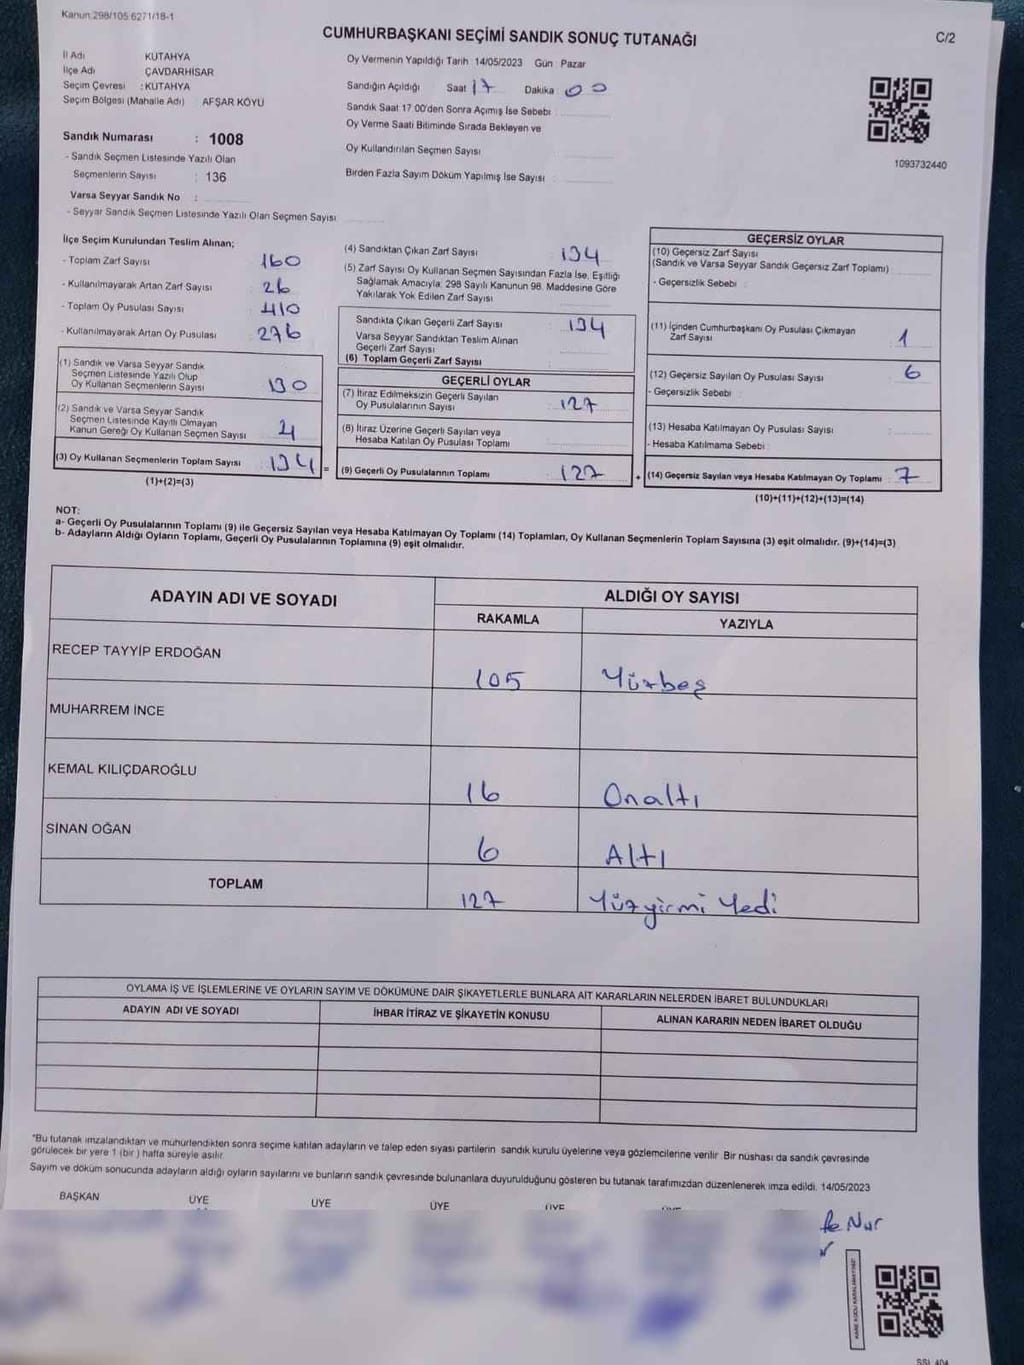 Kanun 298/105 6271/18-1
CUMHURBAŞKANI SEÇİMİ SANDIK SONUÇ TUTANAĞI
C/2
İl Adı KUTAHYA
İlçe Adı ÇAVDARHİSAR
Seçim Çevresi : KUTAHYA
Seçim Bölgesi (Mahalle Adı) AFŞAR KÖYÜ
Sandık Numarası : 1008
- Sandık Seçmen Listesinde Yazılı Olan
Seçmenlerin Sayısı : 136
Varsa Seyyar Sandık No :
- Seyyar Sandık Seçmen Listesinde Yazılı Olan Seçmen Sayısı
Oy Vermenin Yapıldığı Tarih : 14/05/2023 Gün : Pazar
Sandığın Açıldığı Saat 17 Dakika 00
Sandık Saat 17.00'den Sonra Açımış İse Sebebi
Oy Verme Saati Bitiminde Sırada Bekleyen ve
Oy Kullandırılan Seçmen Sayısı
Birden Fazla Sayım Döküm Yapılmış İse Sayısı
1093732440
İlçe Seçim Kurulundan Teslim Alınan;
- Toplam Zarf Sayısı 160
- Kullanılmayarak Artan Zarf Sayısı 26
- Toplam Oy Pusulası Sayısı 410
- Kullanılmayarak Artan Oy Pusulası 276
(1) Sandık ve Varsa Seyyar Sandık
Seçmen Listesinde Yazılı Olup
Oy Kullanan Seçmenlerin Sayısı 130
(2) Sandık ve Varsa Seyyar Sandık
Seçmen Listesinde Kayıtlı Olmayan
Kanun Gereği Oy Kullanan Seçmen Sayısı 4
(3) Oy Kullanan Seçmenlerin Toplam Sayısı 134 =
(1)+(2)=(3)
(4) Sandıktan Çıkan Zarf Sayısı 134
(5) Zarf Sayısı Oy Kullanan Seçmen Sayısından Fazla İse, Eşitliği
Sağlamak Amacıyla; 298 Sayılı Kanunun 98. Maddesine Göre
Yakılarak Yok Edilen Zarf Sayısı
Sandıkta Çıkan Geçerli Zarf Sayısı 134
Varsa Seyyar Sandıktan Teslim Alınan
Geçerli Zarf Sayısı
(6) Toplam Geçerli Zarf Sayısı
GEÇERLİ OYLAR
(7) İtiraz Edilmeksizin Geçerli Sayılan
Oy Pusulalarının Sayısı 127
(8) İtiraz Üzerine Geçerli Sayılan veya
Hesaba Katılan Oy Pusulası Toplamı
(9) Geçerli Oy Pusulalarının Toplamı 127 +
GEÇERSİZ OYLAR
(10) Geçersiz Zarf Sayısı
(Sandık ve Varsa Seyyar Sandık Geçersiz Zarf Toplamı)
- Geçersizlik Sebebi :
(11) İçinden Cumhurbaşkanı Oy Pusulası Çıkmayan
Zarf Sayısı 1
(12) Geçersiz Sayılan Oy Pusulası Sayısı 6
- Geçersizlik Sebebi :
(13) Hesaba Katılmayan Oy Pusulası Sayısı
- Hesaba Katılmama Sebebi :
(14) Geçersiz Sayılan veya Hesaba Katılmayan Oy Toplamı 7
(10)+(11)+(12)+(13)=(14)
NOT:
a- Geçerli Oy Pusulalarının Toplamı (9) ile Geçersiz Sayılan veya Hesaba Katılmayan Oy Toplamı (14) Toplamları, Oy Kullanan Seçmenlerin Toplam Sayısına (3) eşit olmalıdır. (9)+(14)=(3)
b- Adayların Aldığı Oyların Toplamı, Geçerli Oy Pusulalarının Toplamına (9) eşit olmalıdır.
ADAYIN ADI VE SOYADI ALDIĞI OY SAYISI
RAKAMLA YAZIYLA
RECEP TAYYİP ERDOĞAN 105 Yüzbeş
MUHARREM İNCE
KEMAL KILIÇDAROĞLU 16 Onaltı
SİNAN OĞAN 6 Altı
TOPLAM 127 Yüzyirmi Yedi
OYLAMA İŞ VE İŞLEMLERİNE VE OYLARIN SAYIM VE DÖKÜMÜNE DAİR ŞİKAYETLERLE BUNLARA AİT KARARLARIN NELERDEN İBARET BULUNDUKLARI
ADAYIN ADI VE SOYADI İHBAR İTİRAZ VE ŞİKAYETİN KONUSU ALINAN KARARIN NEDEN İBARET OLDUĞU
*Bu tutanak imzalandıktan ve mühürlendikten sonra seçime katılan adayların ve talep eden siyasi partilerin sandık kurulu üyelerine veya gözlemcilerine verilir. Bir nüshası da sandık çevresinde
görülecek bir yere 1 (bir) hafta süreyle asılır.
Sayım ve döküm sonucunda adayların aldığı oyların sayılarını ve bunların sandık çevresinde bulunanlara duyurulduğunu gösteren bu tutanak tarafımızdan düzenlenerek imza edildi. 14/05/2023
BAŞKAN ÜYE ÜYE ÜYE ÜYE
Nur